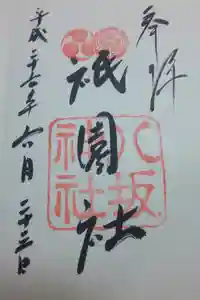 奉拝
祇園社
八坂
神社
平成二十六年六月二十三日